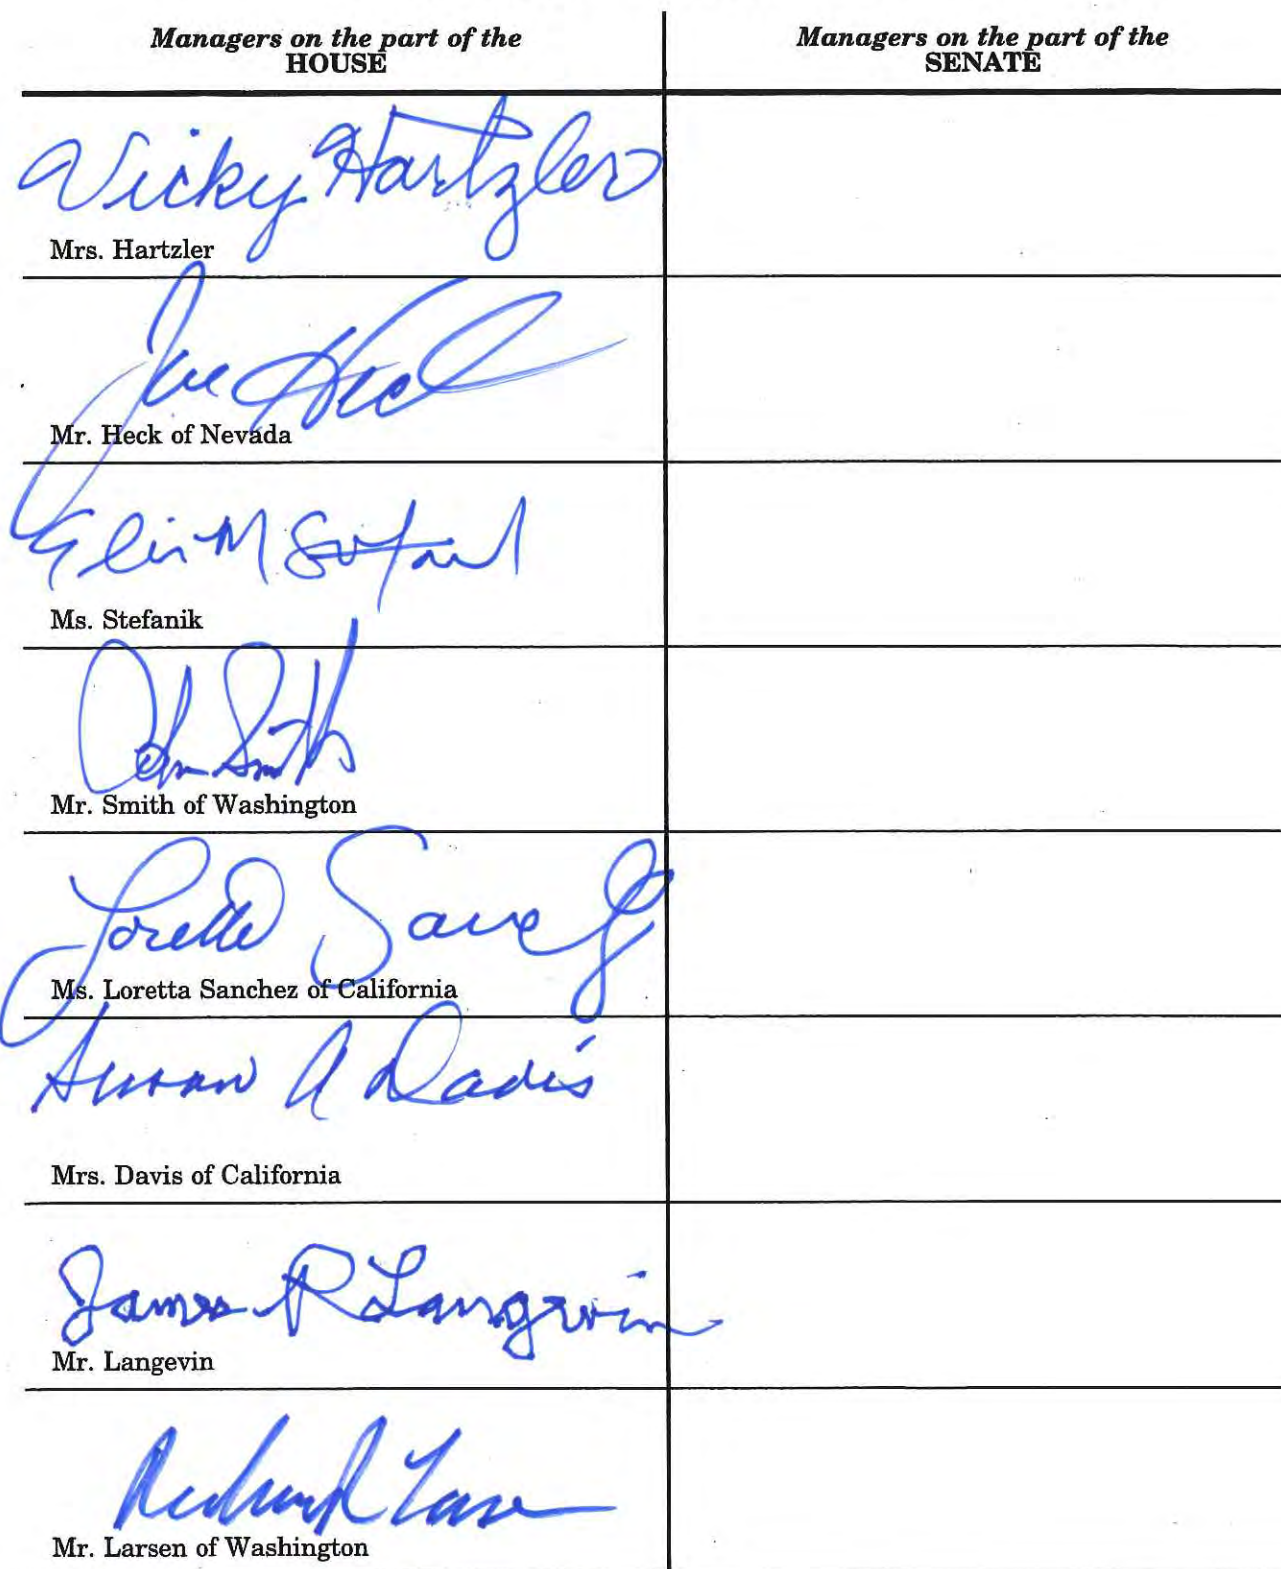 Managers on the part of the
HOUSE
Managers on the part of the
SENATE
Vicky Hartzler
Mrs. Hartzler
Joe Heck
Mr. Heck of Nevada
Mr. Smith of Washington
Ms. Stefanik
Smith
Loretta Sanchez
Ms. Loretta Sanchez of California
Susan A Davis
Mrs. Davis of California
James R Langevin
Mr. Langevin
Mr. Larsen of Washington